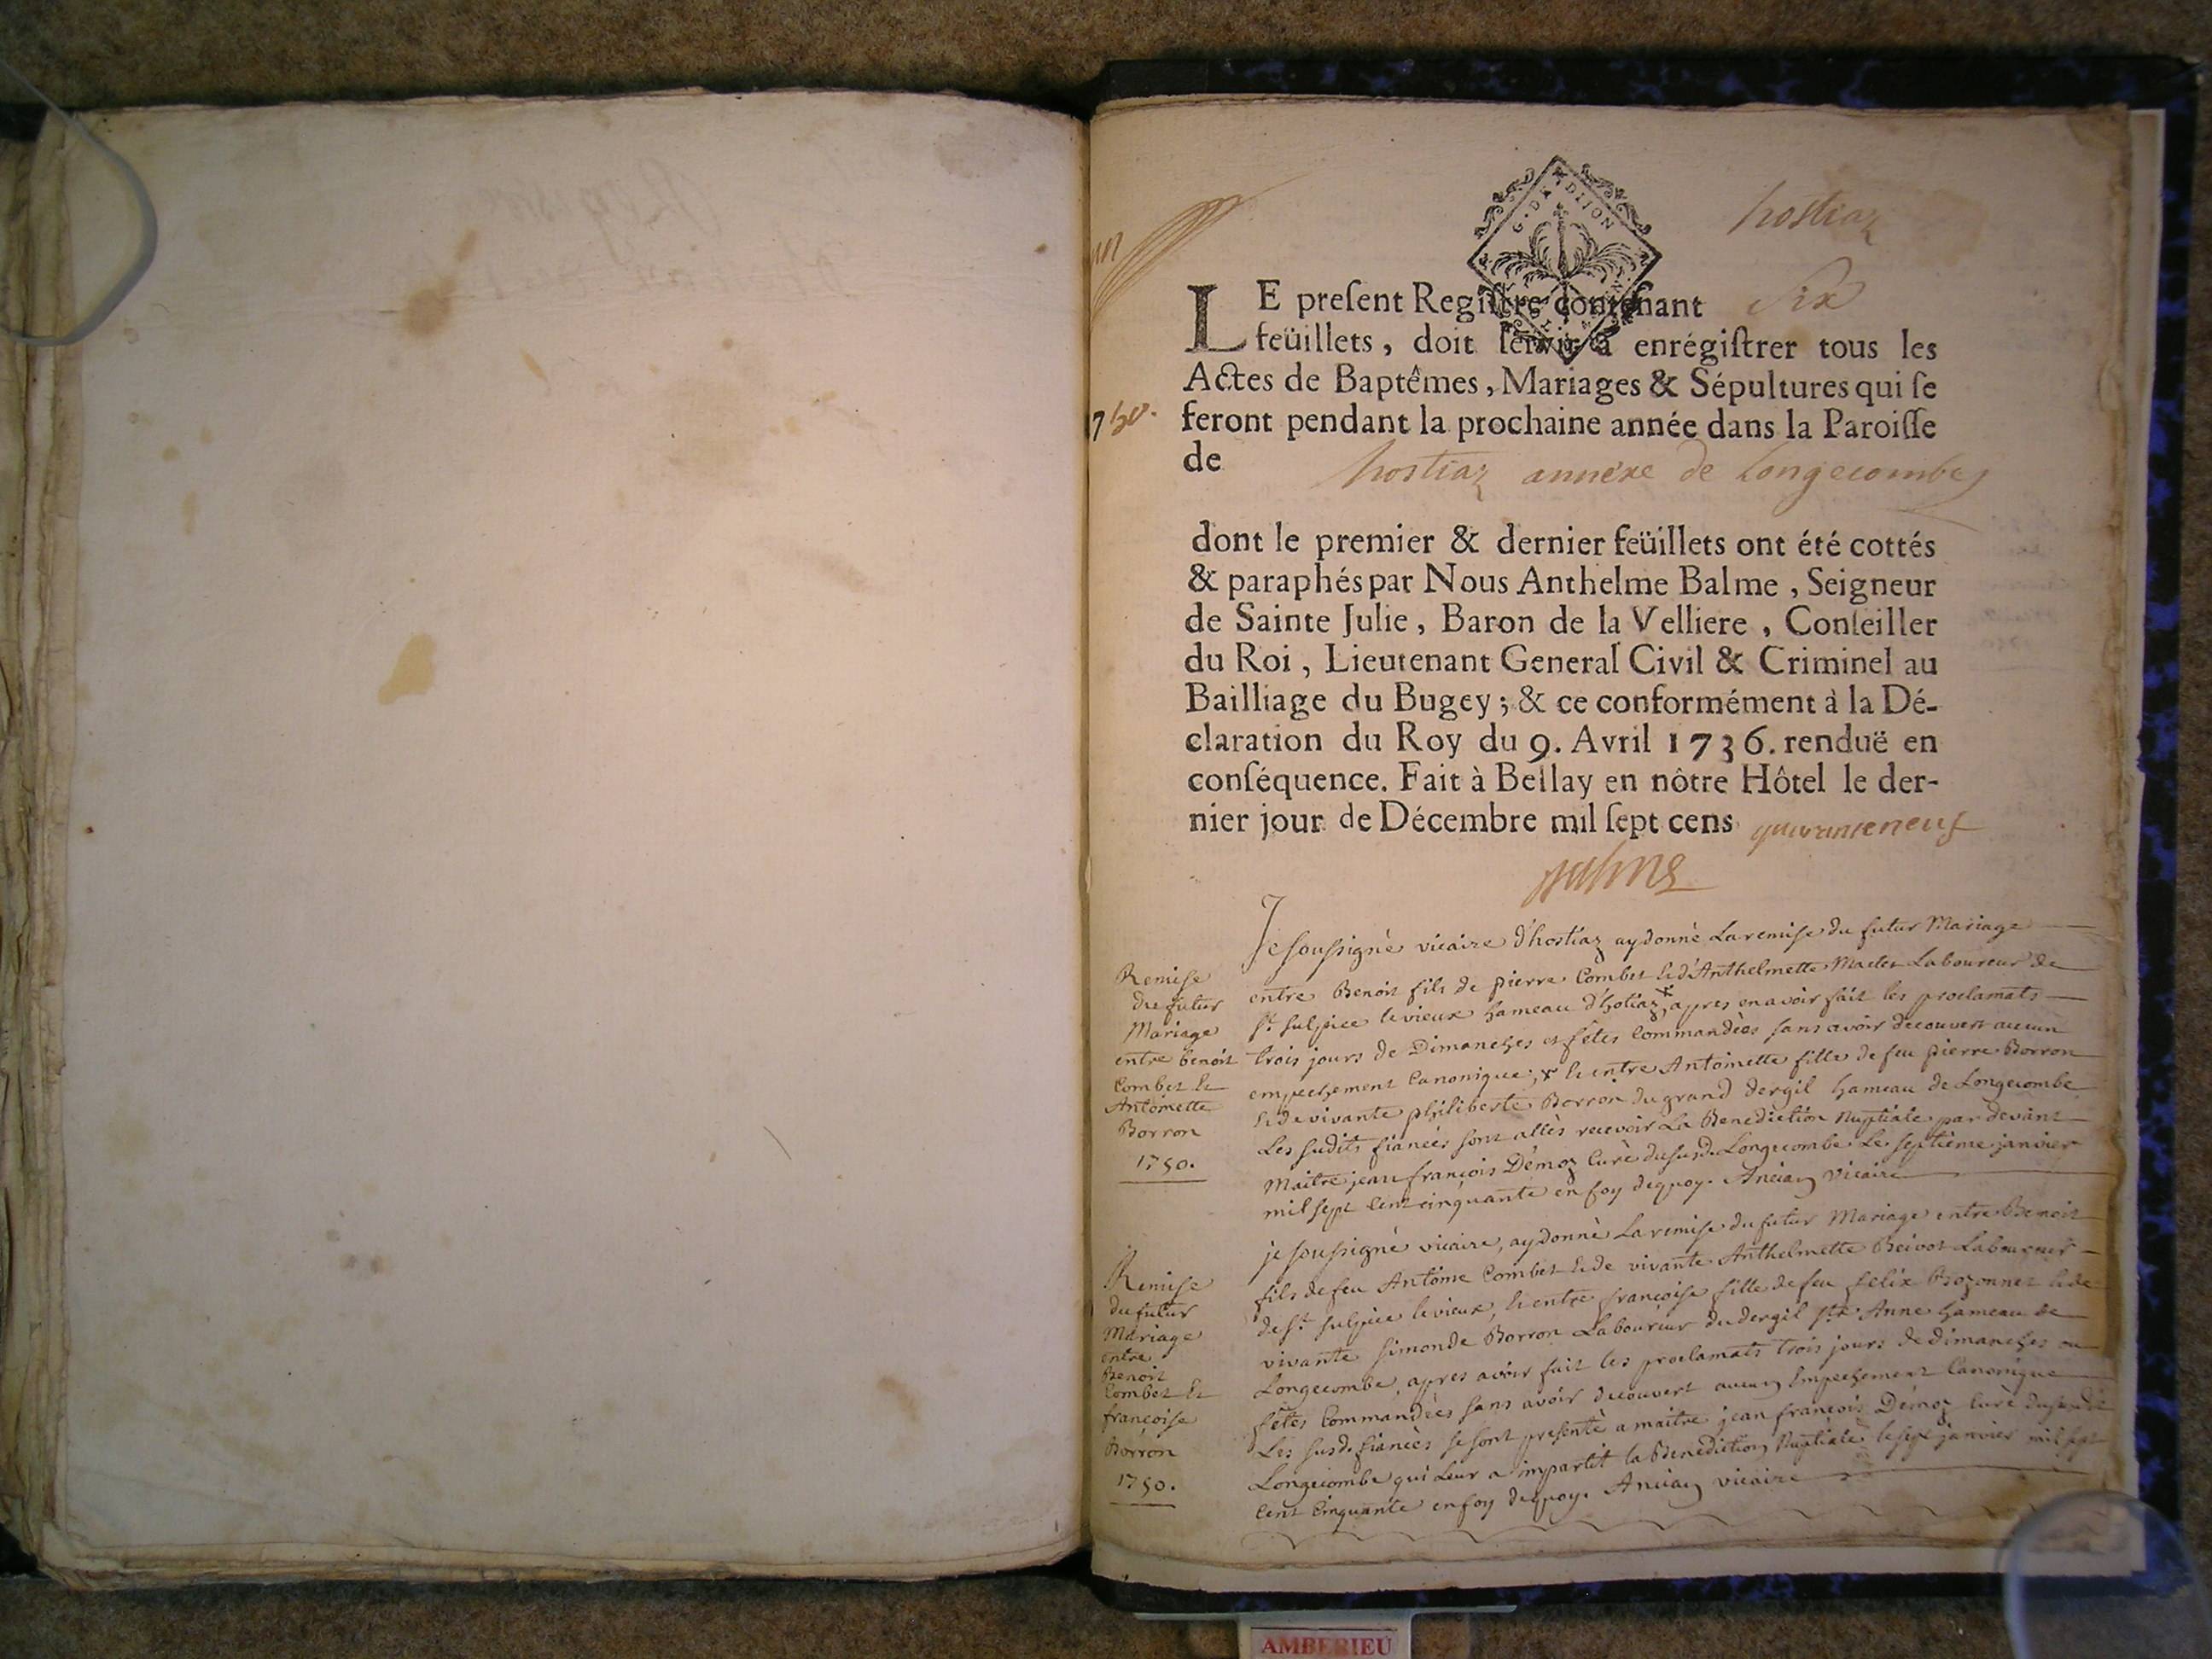 hostiaz
un
LE preſent Regiſtre contenant Six
feüillets, doit ſervir à enrégiſtrer tous les
Actes de Baptêmes, Mariages & Sépultures qui ſe
1750. feront pendant la prochaine année dans la Paroiſſe
de hostiaz annéxe de Longecombe
dont le premier & dernier feüillets ont été cottés
& paraphés par Nous Anthelme Balme, Seigneur
de Sainte Julie, Baron de la Velliere, Conſeiller
du Roi, Lieutenant General Civil & Criminel au
Bailliage du Bugey; & ce conformément à la Dé-
claration du Roy du 9. Avril 1736. renduë en
conſéquence. Fait à Bellay en nôtre Hôtel le der-
nier jour de Décembre mil ſept cens quaranteneuf
Balme
Remise
du futur
Mariage
entre benoit
Combet Et
Antoinette
Borron
1750.
Je soussigné vicaire d'hostiaz ay donné La remise du futur Mariage
entre Benoit fils de pierre Combet Et d'Anthelmette Laboureur de
st sulpice le vieux hameau d'hotiaz, apres en avoir fait les proclamats
trois jours de Dimanches et fêtes Commandées sans avoir decouvert aucun
empechement Canonique; x Et entre Antoinette fille de feu pierre Borron
Et de vivante philiberte Borron du grand dergil hameau de Longecombe
Les sudits fiancés sont allés recevoir La Benediction Nuptiale par devant
Maitre jean françois Démoz Curé du susd. Longecombe Le septième janvier
mil sept Cent cinquante en foy dequoy. Ancian Vicaire
Remise
du futur
Mariage
entre
Benoit
Combet Et
françoise
Borron
1750.
je soussigné vicaire, ay donné La remise du futur Mariage entre Benoit
fils de feu Antoine Combet Et de vivante Anthelmette Laboureur
de st sulpice le vieux, Et entre françoise fille de feu felix Et de
vivante simonde Borron Laboureur du dergil ste Anne hameau de
Longecombe, apres avoir fait les proclamats trois jours de dimanches ou
fêtes Commandées sans avoir decouvert aucun Empechement Canonique
Les susd. fiancés se sont presenté a maitre jean françois Démoz Curé du susdit
Longecombe qui Leur a impartit la Benediction Nuptiale le sept janvier mil sept
Cent Cinquante en foy dequoy. Ancian vicaire
AMBERIEU